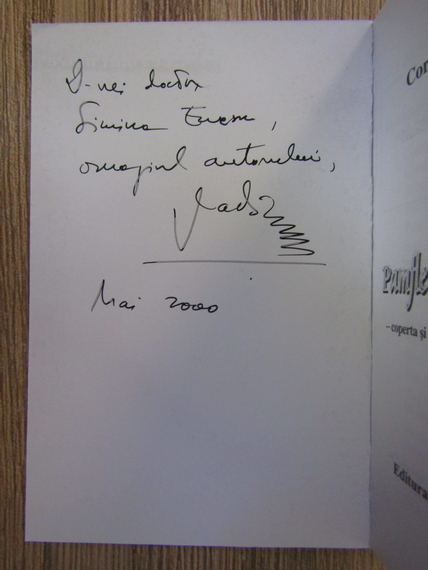 D-nei doctor
Simina Enescu,
omagiul autorului,
Mai 2000
Cor
Pamfle
-coperta şi
Editura